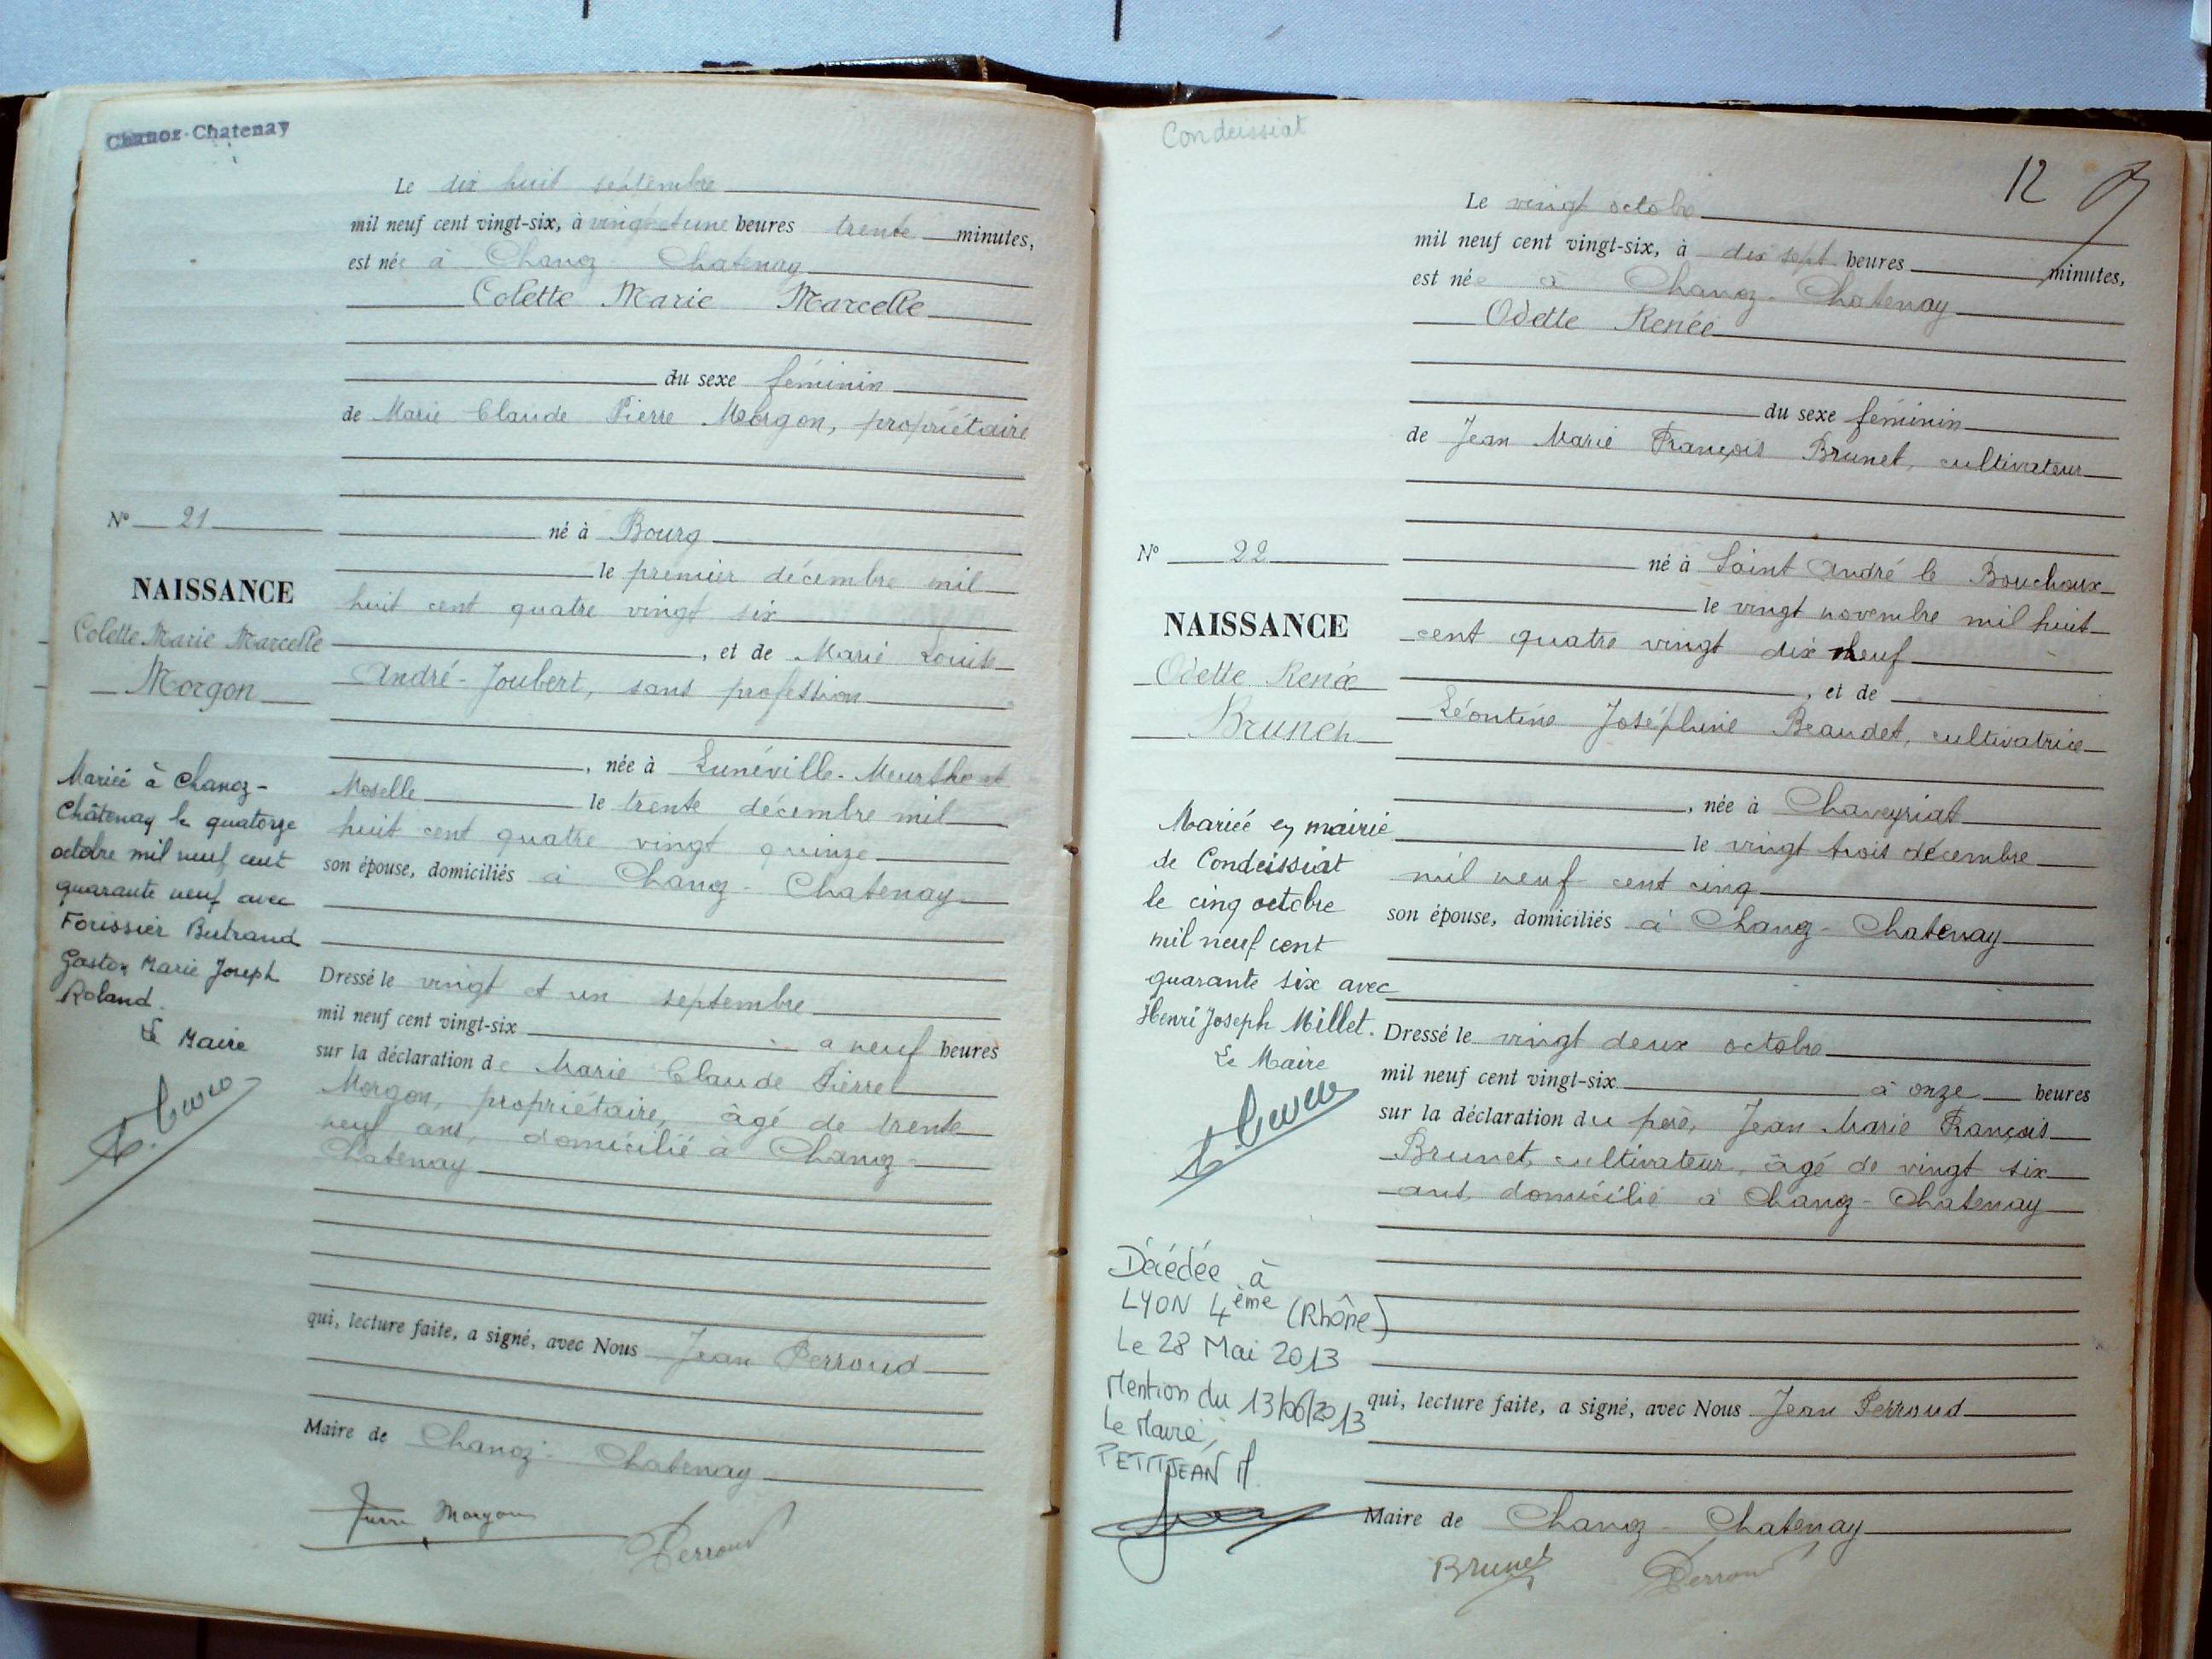 Chanoz-Chatenay
Le dix huit septembre
mil neuf cent vingt-six, à vingt et une heures trente minutes,
est née à Chanoz-Chatenay
Colette Marie Marcelle
du sexe féminin
de Marie Claude Pierre Morgon, propriétaire
né à Bourg
le premier décembre mil
huit cent quatre vingt six
, et de Marie Louise
André-Joubert, sans profession
, née à Lunéville-Meurthe et
Moselle le trente décembre mil
huit cent quatre vingt quinze
son épouse, domiciliés à Chanoz-Chatenay
Dressé le vingt et un septembre
mil neuf cent vingt-six à neuf heures
sur la déclaration de Marie Claude Pierre
Morgon, propriétaire, âgé de trente
neuf ans, domicilié à Chanoz-
Chatenay
qui, lecture faite, a signé, avec Nous Jean Perroud
Maire de Chanoz-Chatenay
Pierre Morgon
Perroud
N° 21
NAISSANCE
Colette Marie Marcelle
Morgon
Mariée à Chanoz-
Châtenay le quatorze
octobre mil neuf cent
quarante neuf avec
Forissier Bertrand
Gaston Marie Joseph
Roland.
Le Maire
Condeissiat
12
Le vingt octobre
mil neuf cent vingt-six, à dix sept heures minutes,
est née à Chanoz-Chatenay
Odette Renée
du sexe féminin
de Jean Marie François Brunet, cultivateur
né à Saint André le Bouchoux
le vingt novembre mil huit
cent quatre vingt dix neuf
, et de
Léontine Joséphine Beaudet, cultivatrice
, née à Chaveyriat
le vingt trois décembre
mil neuf cent cinq
son épouse, domiciliés à Chanoz-Chatenay
Dressé le vingt deux octobre
mil neuf cent vingt-six à onze heures
sur la déclaration du père, Jean Marie François
Brunet, cultivateur, âgé de vingt six
ans, domicilié à Chanoz-Chatenay
qui, lecture faite, a signé, avec Nous Jean Perroud
Maire de Chanoz-Chatenay
Brunet
Perroud
N° 22
NAISSANCE
Odette Renée
Brunet
Mariée en mairie
de Condeissiat
le cinq octobre
mil neuf cent
quarante six avec
Henri Joseph Millet.
Le Maire
Décédée à
LYON 4ème (Rhône)
Le 28 Mai 2013
Mention du 13/06/2013
Le Maire,
PETITJEAN M.